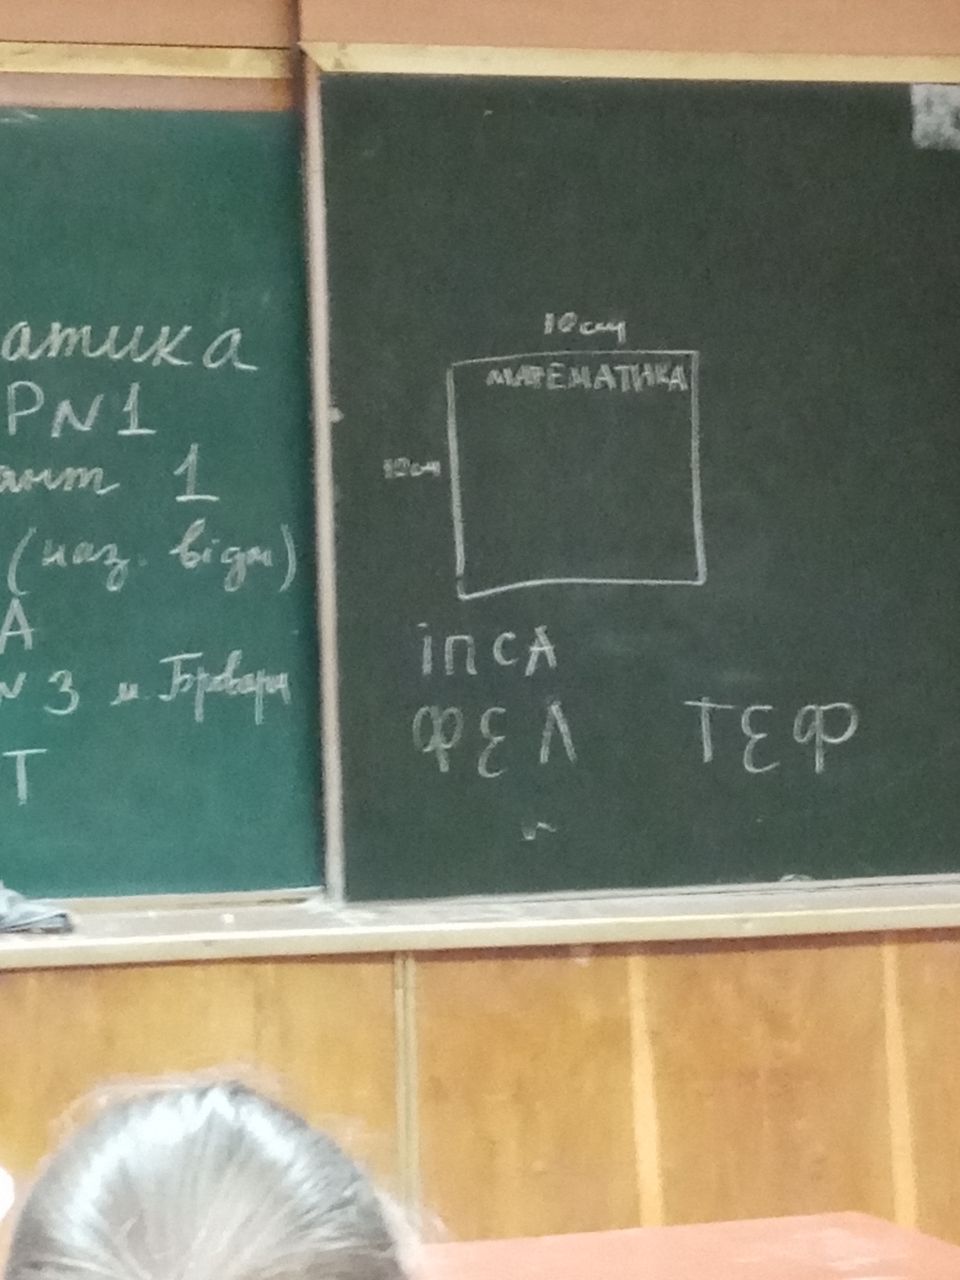 атика
Р№1
ант 1
(наз. відм)
А
№3 м. Бровари
Т
10см
МАТЕМАТИКА
10см
іпсА
фЕЛ
ТЕФ